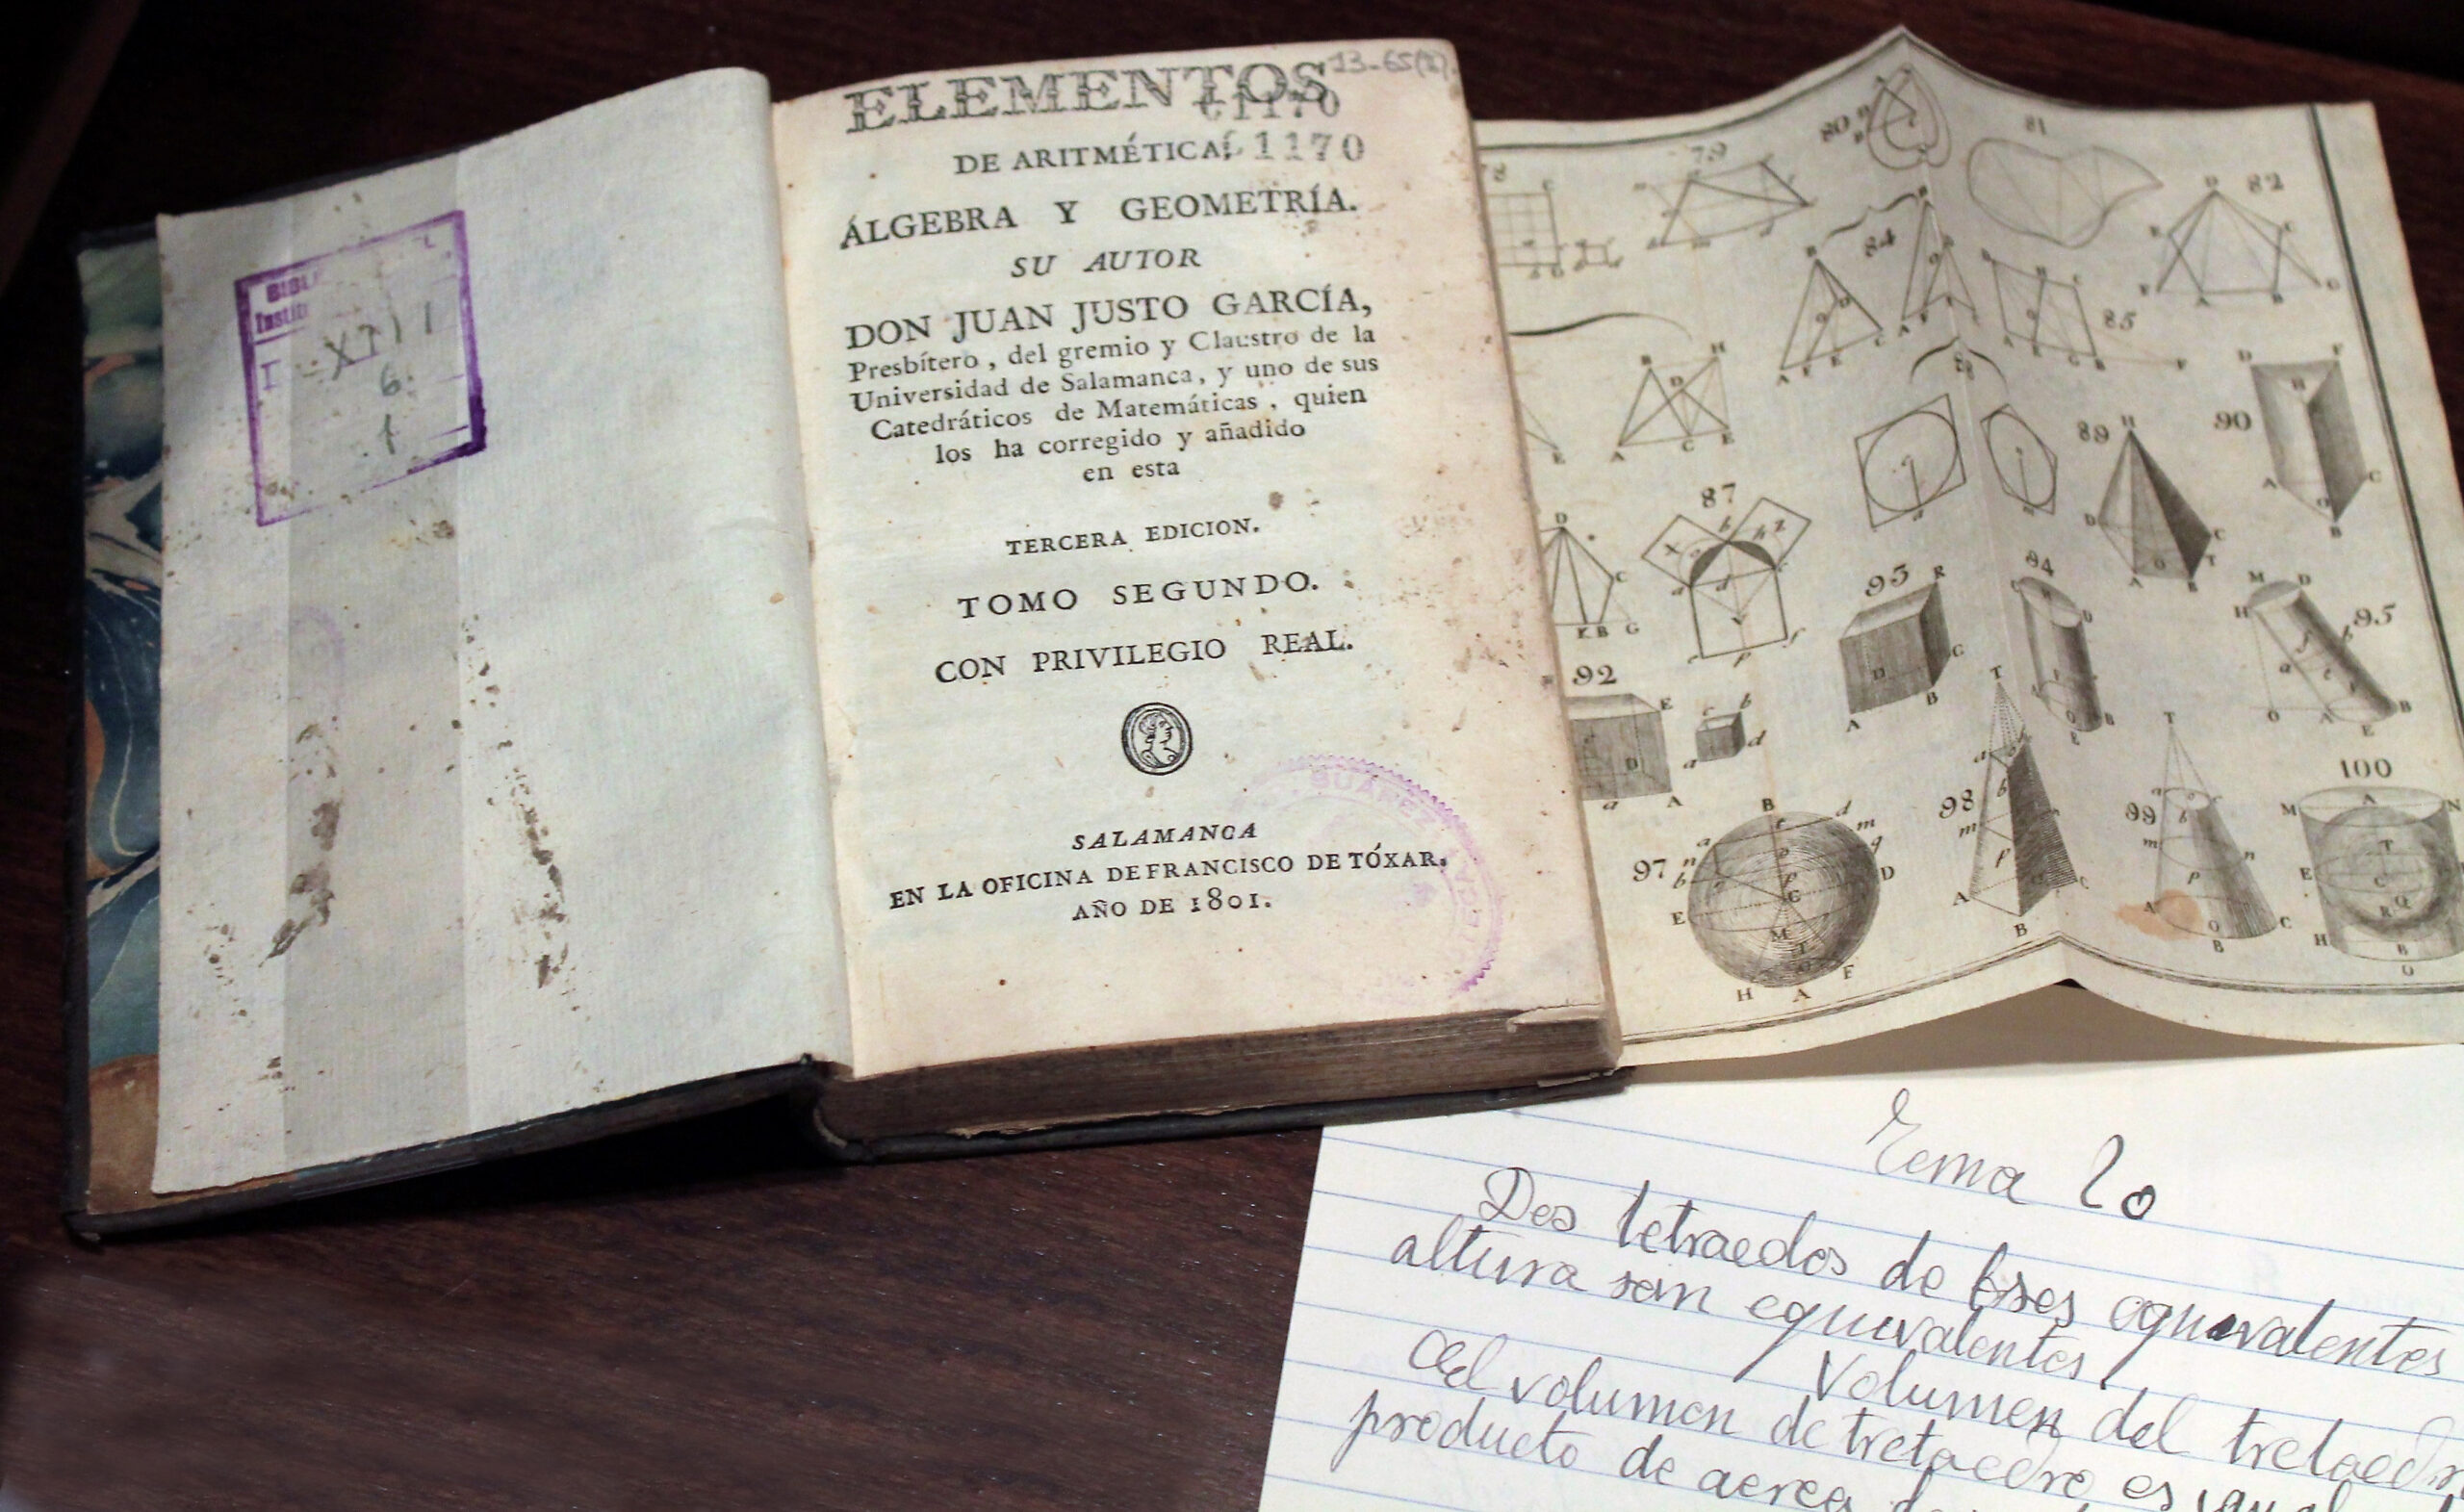 BIBL
Instit
6
1
13-65(2)
ELEMENTOS
C1170
DE ARITMÉTICA, 1170
ÁLGEBRA Y GEOMETRÍA.
SU AUTOR
DON JUAN JUSTO GARCÍA,
Presbítero, del gremio y Claustro de la
Universidad de Salamanca, y uno de sus
Catedráticos de Matemáticas, quien
los ha corregido y añadido
en esta
TERCERA EDICION.
TOMO SEGUNDO.
CON PRIVILEGIO REAL.
SALAMANCA
EN LA OFICINA DE FRANCISCO DE TÓXAR.
AÑO DE 1801.
SUAREZ
79
80
81
82
84
85
87
89
90
92
93
94
95
97
98
99
100
Tema 20
Dos tetraedos de bses equivalentes
altura son equivalentes
Volumen del tretaed
El volumen de tretaedro es igual
producto de aerea